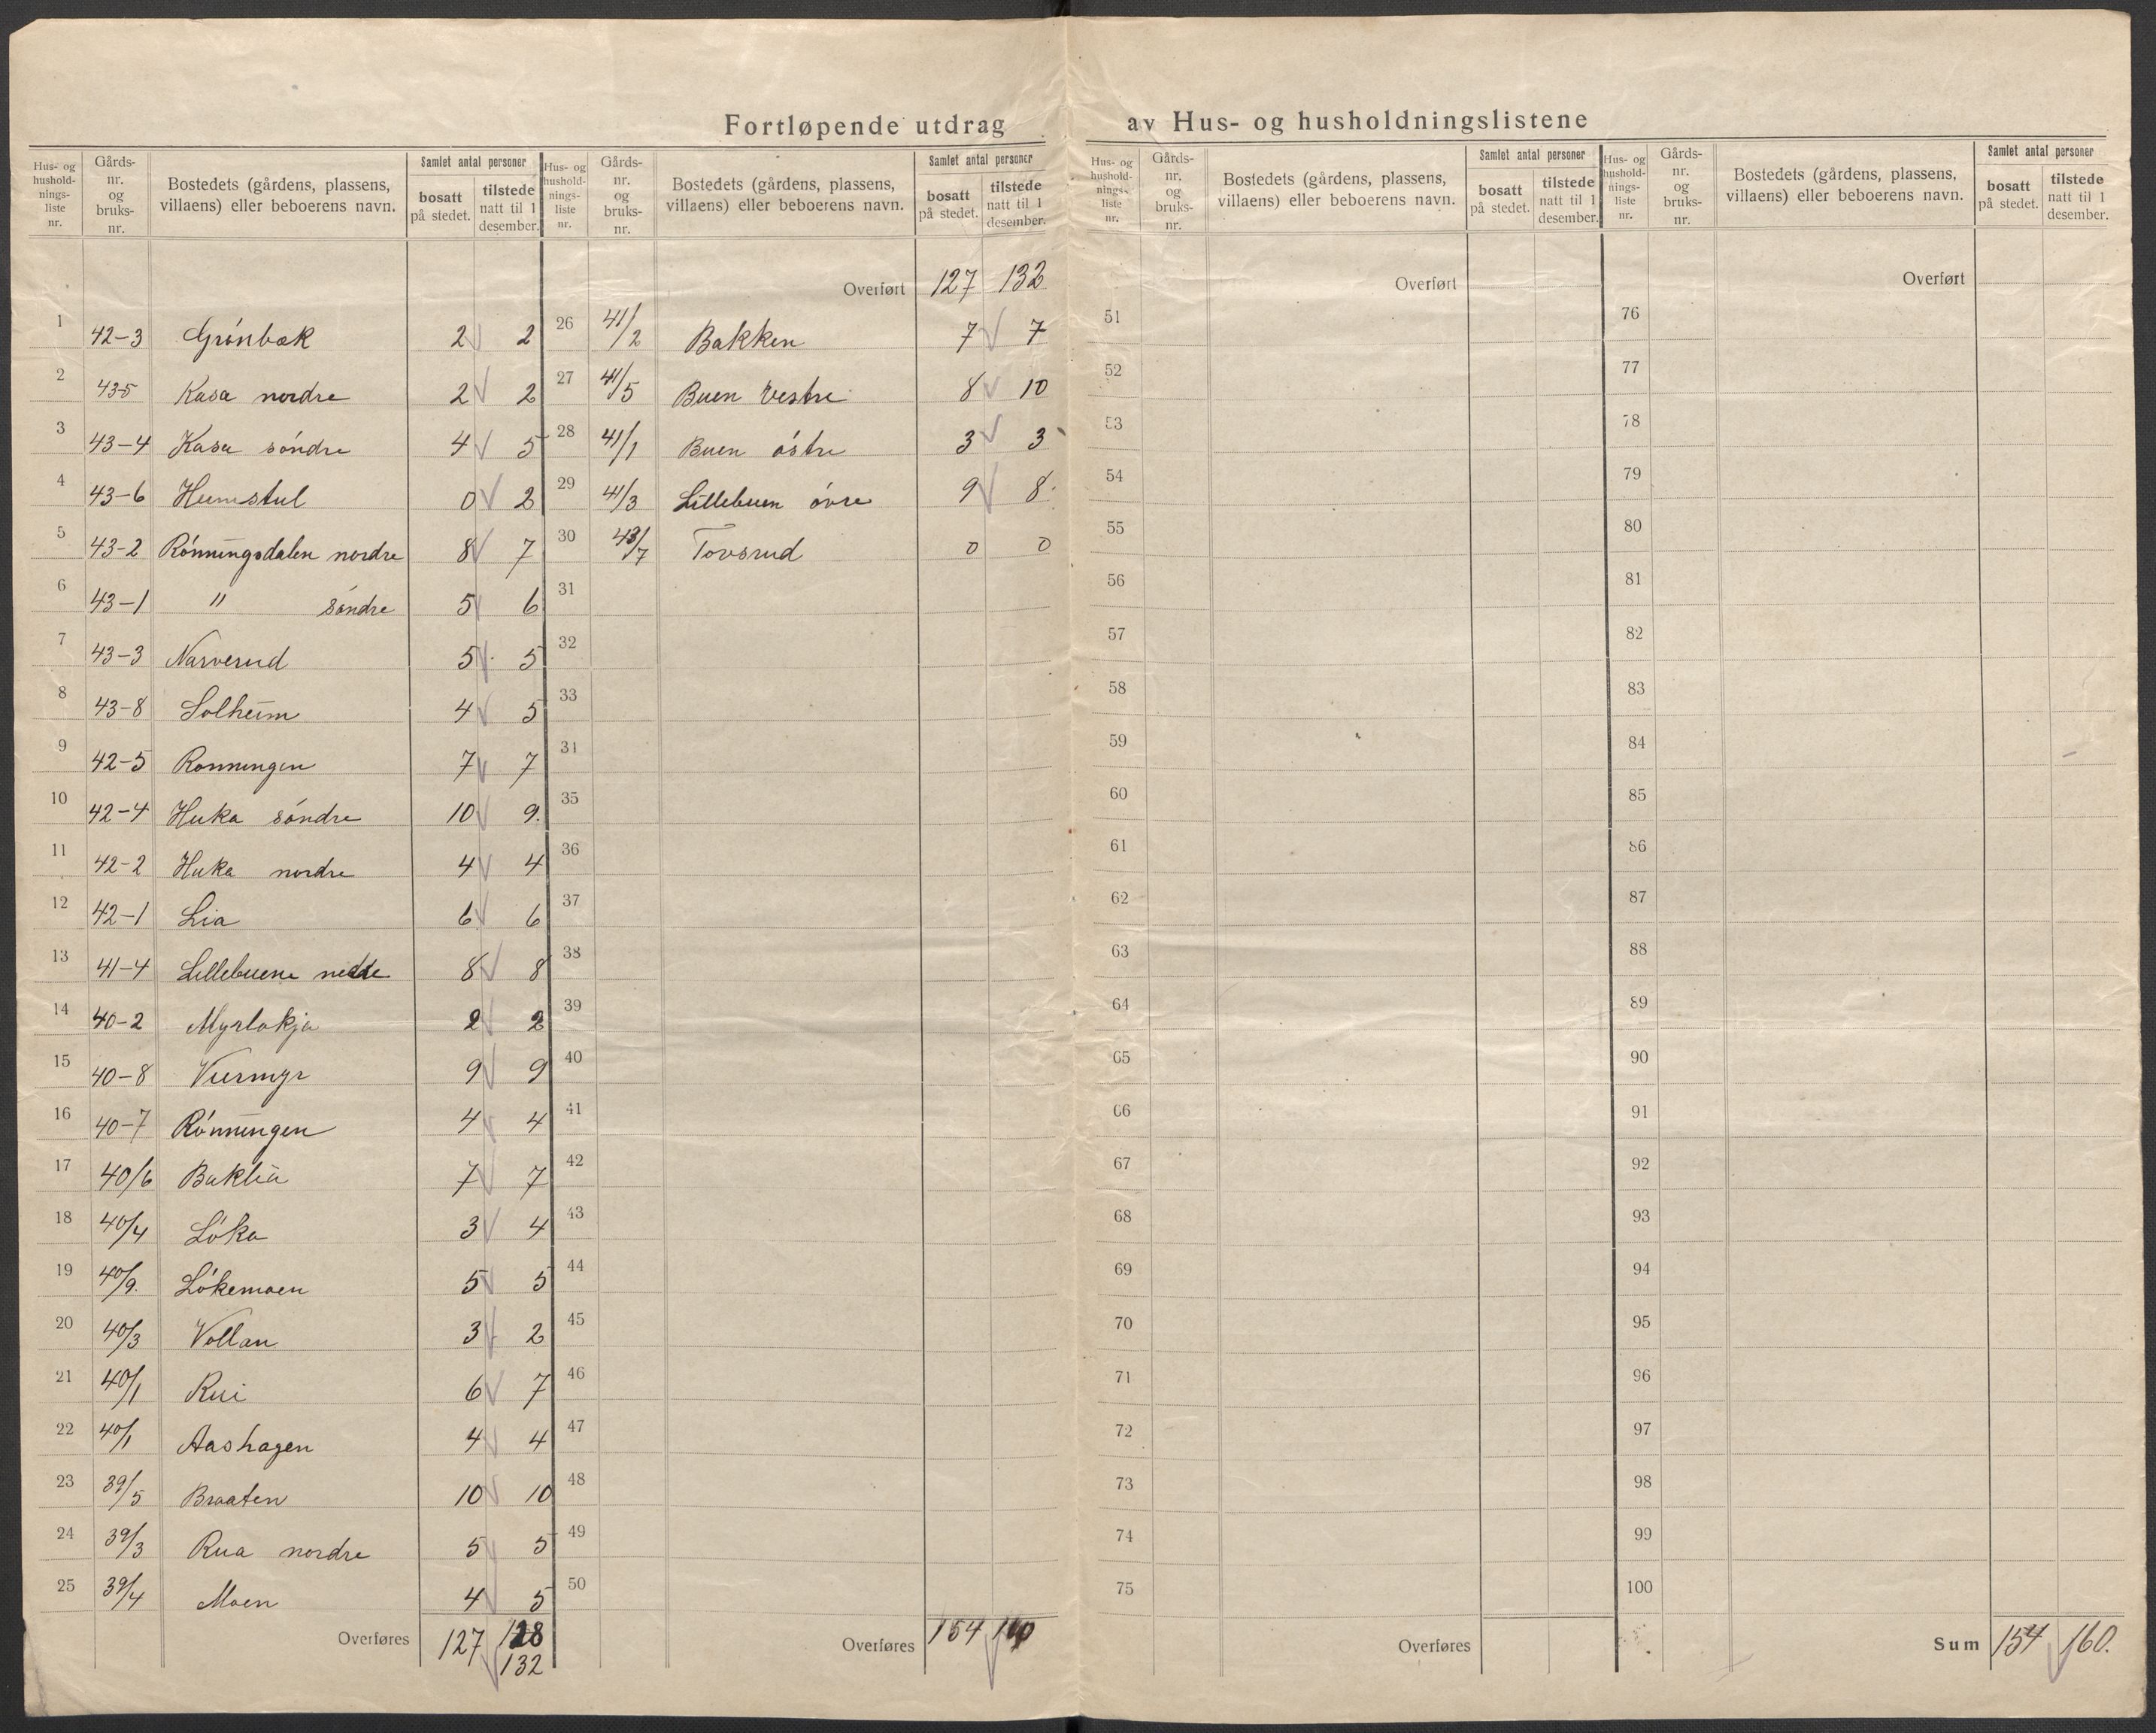 Fortløpende utdrag av Hus- og husholdningslistene
Hus- og husholdnings-liste nr. | Gårds-nr. og bruks-nr. | Bostedets (gårdens, plassens, villaens) eller beboerens navn. | Samlet antal personer | bosatt på stedet. | tilstede natt til 1 desember.
1 42-3 Grönbæk 2 2
2 43-5 Kasa nordre 2 2
3 43-4 Kasa söndre 4 5
4 43-6 Heimstul 0 2
5 43-2 Rönningsdalen nordre 8 7
6 43-1 " söndre 5 6
7 43-3 Narverud 5 5
8 43-8 Solheim 4 5
9 42-5 Ronningen 7 7
10 42-4 Huka söndre 10 9.
11 42-2 Huka nordre 4 4
12 42-1 Lia 6 6
13 41-4 Lillebuene nedre 8 8
14 40-2 Myrlokja 2 2
15 40-8 Viermyr 9 9
16 40-7 Rönningen 4 4
17 40/6 Baklia 7 7
18 40/4 Löka 3 4
19 40/9. Lökemoen 5 5
20 40/3 Vollan 3 2
21 40/1 Rui 6 7
22 40/1 Aashagen 4 4
23 39/5 Braaten 10 10
24 39/3 Rua nordre 5 5
25 39/4 Moen 4 5
Overføres 127 128
132
Hus- og husholdnings-liste nr. | Gårds-nr. og bruks-nr. | Bostedets (gårdens, plassens, villaens) eller beboerens navn. | Samlet antal personer | bosatt på stedet. | tilstede natt til 1 desember.
Overført 127 132
26 41/2 Bakken 7 7
27 41/5 Buen vestre 8 10
28 41/1 Buen östre 3 3
29 41/3 Lillebuen övre 9 8
30 43/7 Tovsrud 0 0
31
32
33
34
35
36
37
38
39
40
41
42
43
44
45
46
47
48
49
50
Overføres 154 160
Hus- og husholdnings-liste nr. | Gårds-nr. og bruks-nr. | Bostedets (gårdens, plassens, villaens) eller beboerens navn. | Samlet antal personer | bosatt på stedet. | tilstede natt til 1 desember.
Overført
51
52
53
54
55
56
57
58
59
60
61
62
63
64
65
66
67
68
69
70
71
72
73
74
75
Overføres
Hus- og husholdnings-liste nr. | Gårds-nr. og bruks-nr. | Bostedets (gårdens, plassens, villaens) eller beboerens navn. | Samlet antal personer | bosatt på stedet. | tilstede natt til 1 desember.
Overført
76
77
78
79
80
81
82
83
84
85
86
87
88
89
90
91
92
93
94
95
96
97
98
99
100
Sum 154 160.